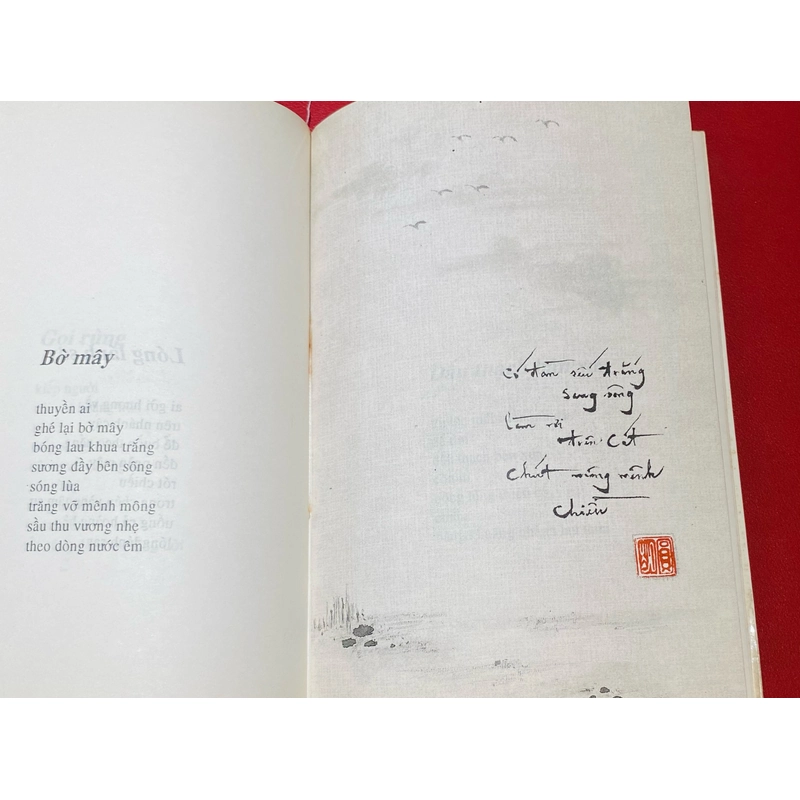 Bờ mây
thuyền ai
ghé lại bờ mây
bóng lau khua trắng
sương đầy bên sông
sóng lùa
trăng vỡ mênh mông
sầu thu vương nhẹ
theo dòng nước êm
Có đàn sếu trắng
sang sông
Làm rơi
trên cát
chút mỏng mênh
chiều